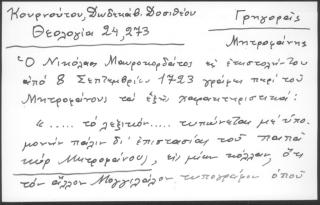 Κουρνούτου, Δωδεκάθ. Δοσιθέου
Θεολογία 24, 273
Γρηγοράς
Μητροφάνης
Ὁ Νικόλαος Μαυροκορδᾶτος εἰς ἐπιστολήν του
ἀπό 8 Σεπτεμβρίου 1723 γράφει περί τοῦ
Μητροφάνους τά ἑξῆς χαρακτηριστικά:
"..... τό λεξικόν.... τυπώνεται μέ ὑπο-
μονήν πάλιν δι' ἐπιστασίας τοῦ παπᾶ
κύρ Μητροφάνους, εἰς μίαν κόλλαν, ὅτι
τόν ἄλλον τυπογράφον ὁποῦ